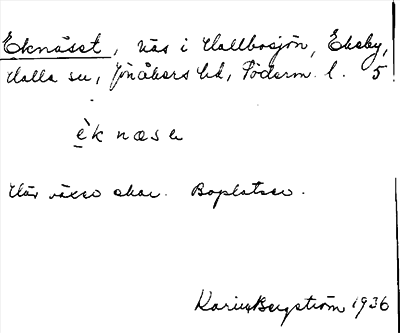 Eknäset, näs i Hallbosjön, Ekeby,
Halla sn, Jönåkers hd, Söderm. l. 5
èk næse
Här växer ekar. Boplatser.
Karin Bergström 1936